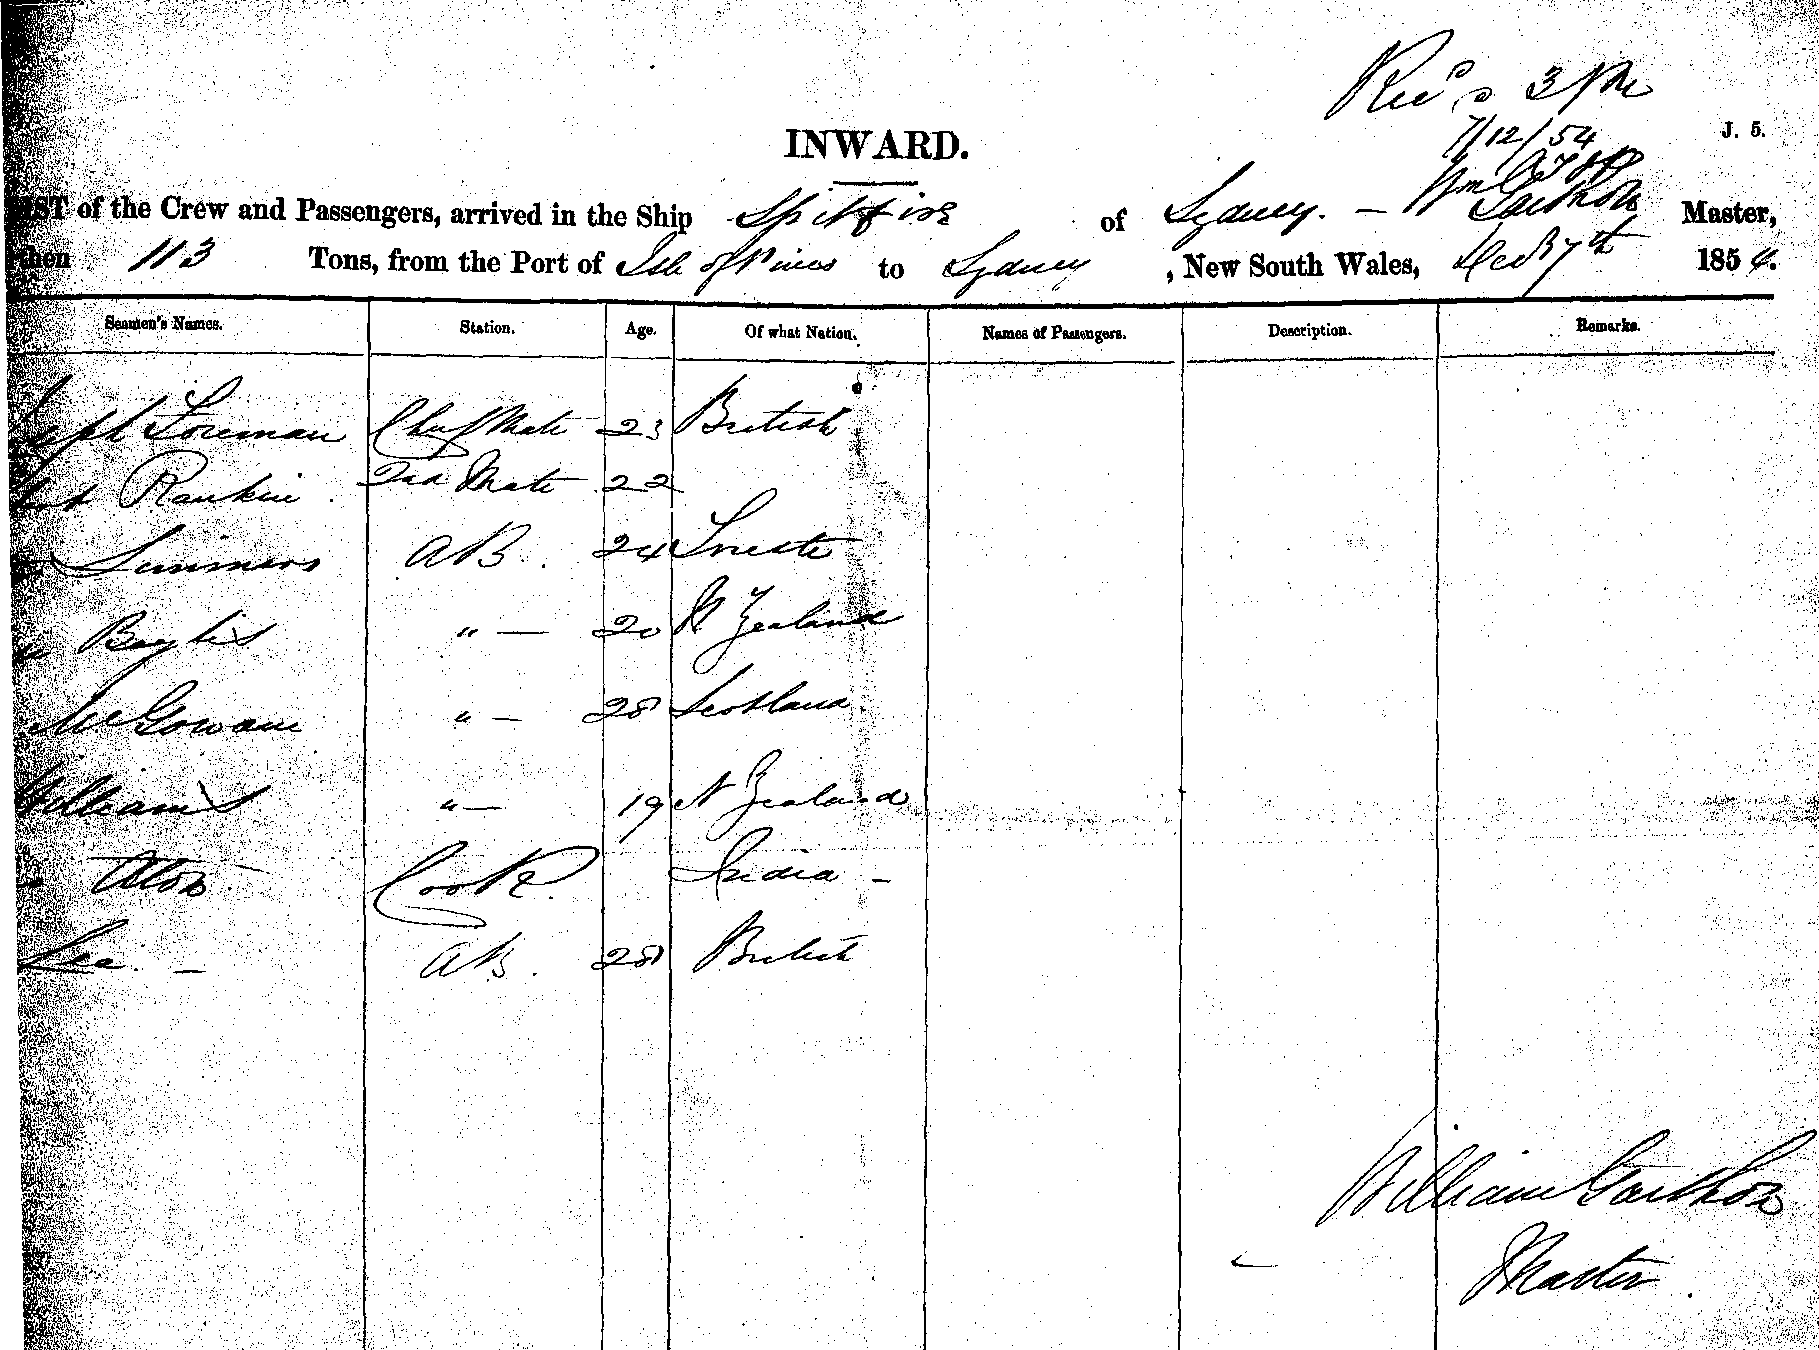 Rec'd 3 PM
7/12/54
J. 5.
INWARD.
LIST of the Crew and Passengers, arrived in the Ship Spitfire of Sydney. — Wm Garthon Master,
then 113 Tons, from the Port of Isle of Pines to Sydney, New South Wales, Decr 7th 1854.
Seamen's Names. Station. Age. Of what Nation. Names of Passengers. Description. Remarks.
Foreman Chief Mate 23 British
Rankin 2nd Mate 22
Summers AB. 24 Trieste
Baylis " — 20 N Zealand
McGowan " — 28 Scotland
Williams " — 19 N Zealand
Cook. India —
Lee. — AB. 28 British
William Garthon
Master.